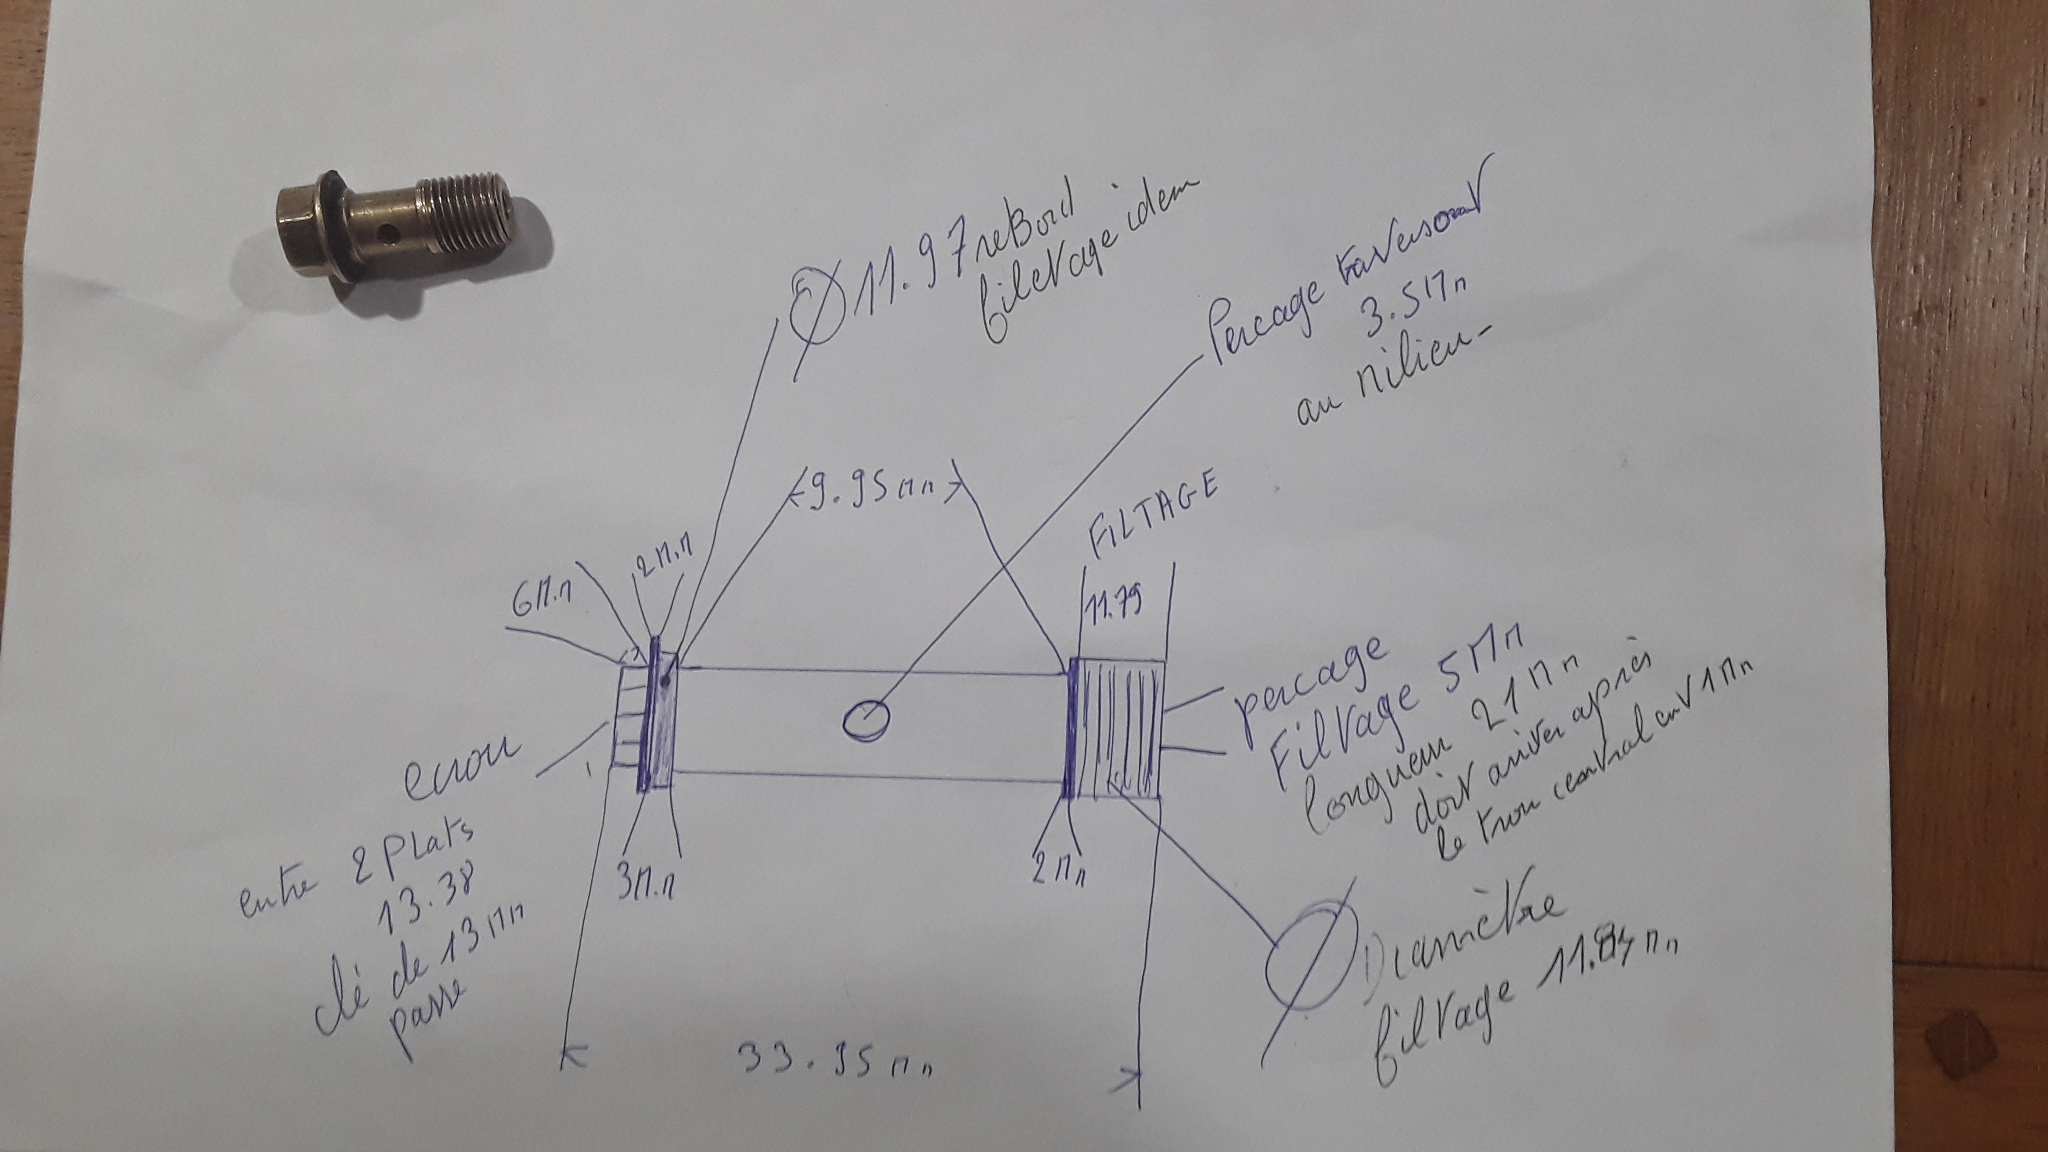 Ø 11.97 reBord
filetage idem
Percage traversant
3.5mm
au milieu-
9.95mm
FILTAGE
11.79
6m.m
2m.m
ecrou
entre 2 Plats
13.38
clé de 13mm
passe
3m.m
2mm
percage
Filtage 5mm
longueur 21mm
doit arriver après
le trou central
1mm
Diamètre
filtage
33.95mm